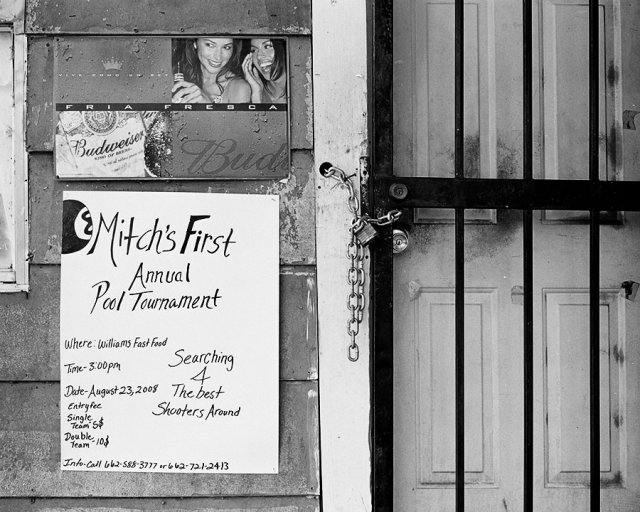 FRIA FRESCA
Budweiser
KING OF BEERS
Bud
8
Mitch's First
Annual
Pool Tournament
Where: Williams Fast Food
Time- 3:00pm
Date- August 23, 2008
Entry fee
Single
Team 5$
Double
Team - 10$
Searching
4
The best
Shooters Around
Info- Call 662-588-3777 or 662-721-2413